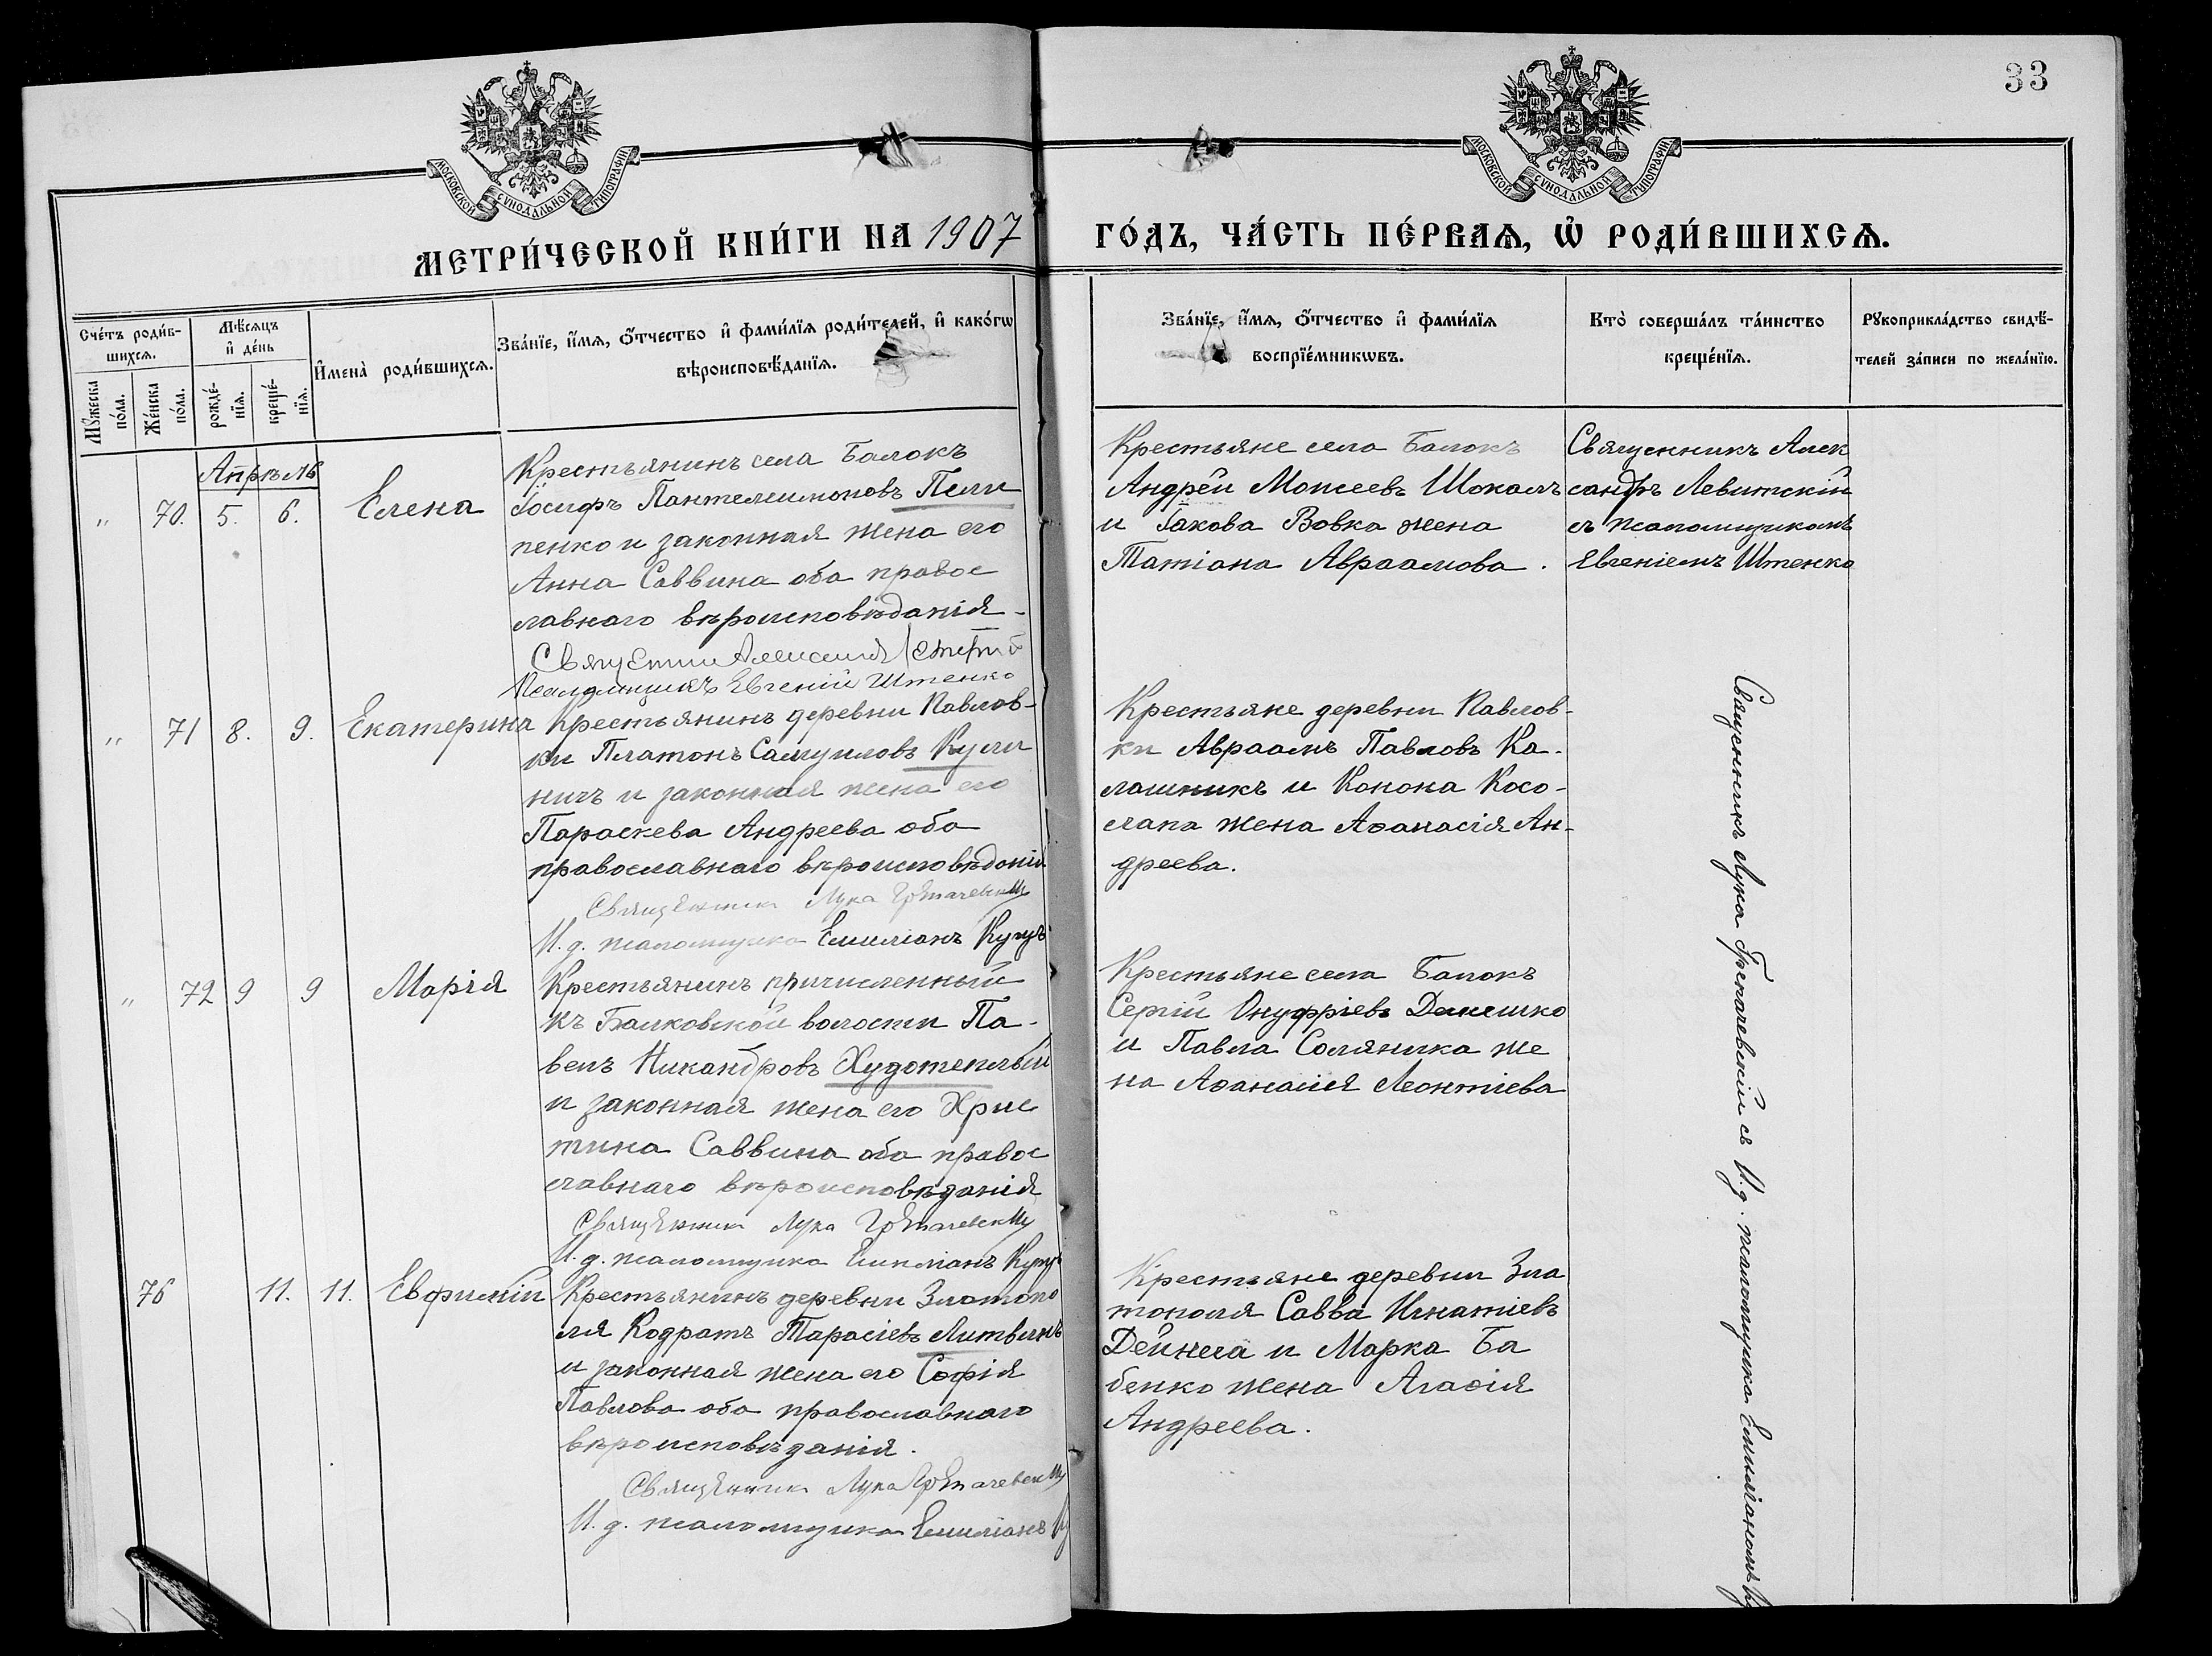 33
МОСКОВСКОЙ СѴНОДАЛЬНОЙ ТИПОГРАФІИ
МОСКОВСКОЙ СѴНОДАЛЬНОЙ ТИПОГРАФІИ
МЕТРИ́ЧЕСКОЙ КНИ́ГИ НА 1907 ГО́ДЪ, ЧА́СТЬ ПЕ́РВАѦ, Ѡ҆ РОДИ́ВШИХСѦ.
Сче́тъ роди́в-
шихсѧ.
Мѣ́сѧцъ
и҆ де́нь
Мꙋ́жеска
по́ла.
Же́нска
по́ла.
рожде́-
нїѧ.
креще́-
нїѧ.
И҆мена̀ роди́вшихсѧ.
Зва́нїе, и҆́мѧ, ѻ҆́тчество и҆ фами́лїѧ роди́телей, и҆ како́гѡ
вѣроисповѣ́данїѧ.
Зва́нїе, и҆́мѧ, ѻ҆́тчество и҆ фами́лїѧ
воспрїе́мникѡвъ.
Кто̀ соверша́лъ та́инство
креще́нїѧ.
Рꙋкоприкла́дство свидѣ́-
телей за́писи по жела́нїю.
Апрѣль
" 70. 5. 6. Елена
Крестьянинъ села Балокъ
Іосифъ Пантелеимоновъ Пили
пенко и законная жена его
Анна Саввина оба правос
лавнаго вѣроисповѣданія -
Псаломщикъ Евгеній Штенко
Крестьяне села Балокъ
Андрей Моисеевъ Шокалъ
и Іакова Вовка жена
Татіана Авраамова.
Священникъ Алек
сандръ Левитскій
съ псаломщикомъ
Евгеніемъ Штенко
" 71 8. 9. Екатерина
Крестьянинъ деревни Павлов-
ки Платонъ Самуиловъ Кули
ничъ и законная жена его
Параскева Андреева оба
православнаго вѣроисповѣданія
Священникъ Лука Гречачевскій
И. д. псаломщика Емиліанъ
Крестьяне деревни Павлов-
ки Авраамъ Павловъ Ка-
лашникъ и Конона Косо-
лапа жена Аѳанасія Ан-
дреева.
" 72 9 9 Марія
Крестьянинъ причисленный
къ Балковской волости Па-
велъ Никандровъ Худотеплый
и законная жена его Хрис
тина Саввина оба правос
лавнаго вѣроисповѣданія
Священникъ Лука Гречачевскій
И. д. псаломщика Емиліанъ
Крестьяне села Балокъ
Сергій Онуфріевъ Демешко
и Павла Соляника же
на Аѳанасія Леонтіева
76 11. 11. Евфимій
Крестьянинъ деревни Златопо
ля Кодратъ Тарасіевъ Литвинъ
и законная жена его Софія
Павлова оба православнаго
вѣроисповѣданія.
Священникъ Лука Гречачевскій
И. д. псаломщика Емиліанъ
Крестьяне деревни Зла
тополя Савва Игнатіевъ
Дейнега и Марка Ба
бенко жена Агаѳія
Андреева.
Священникъ Лука Гречачевскій съ И. д. псаломщика Емиліаномъ